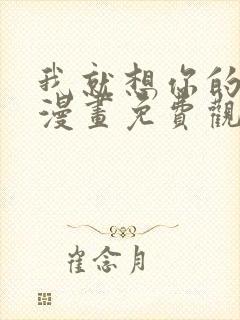 我就想你的
漫畫免費觀
崔念月